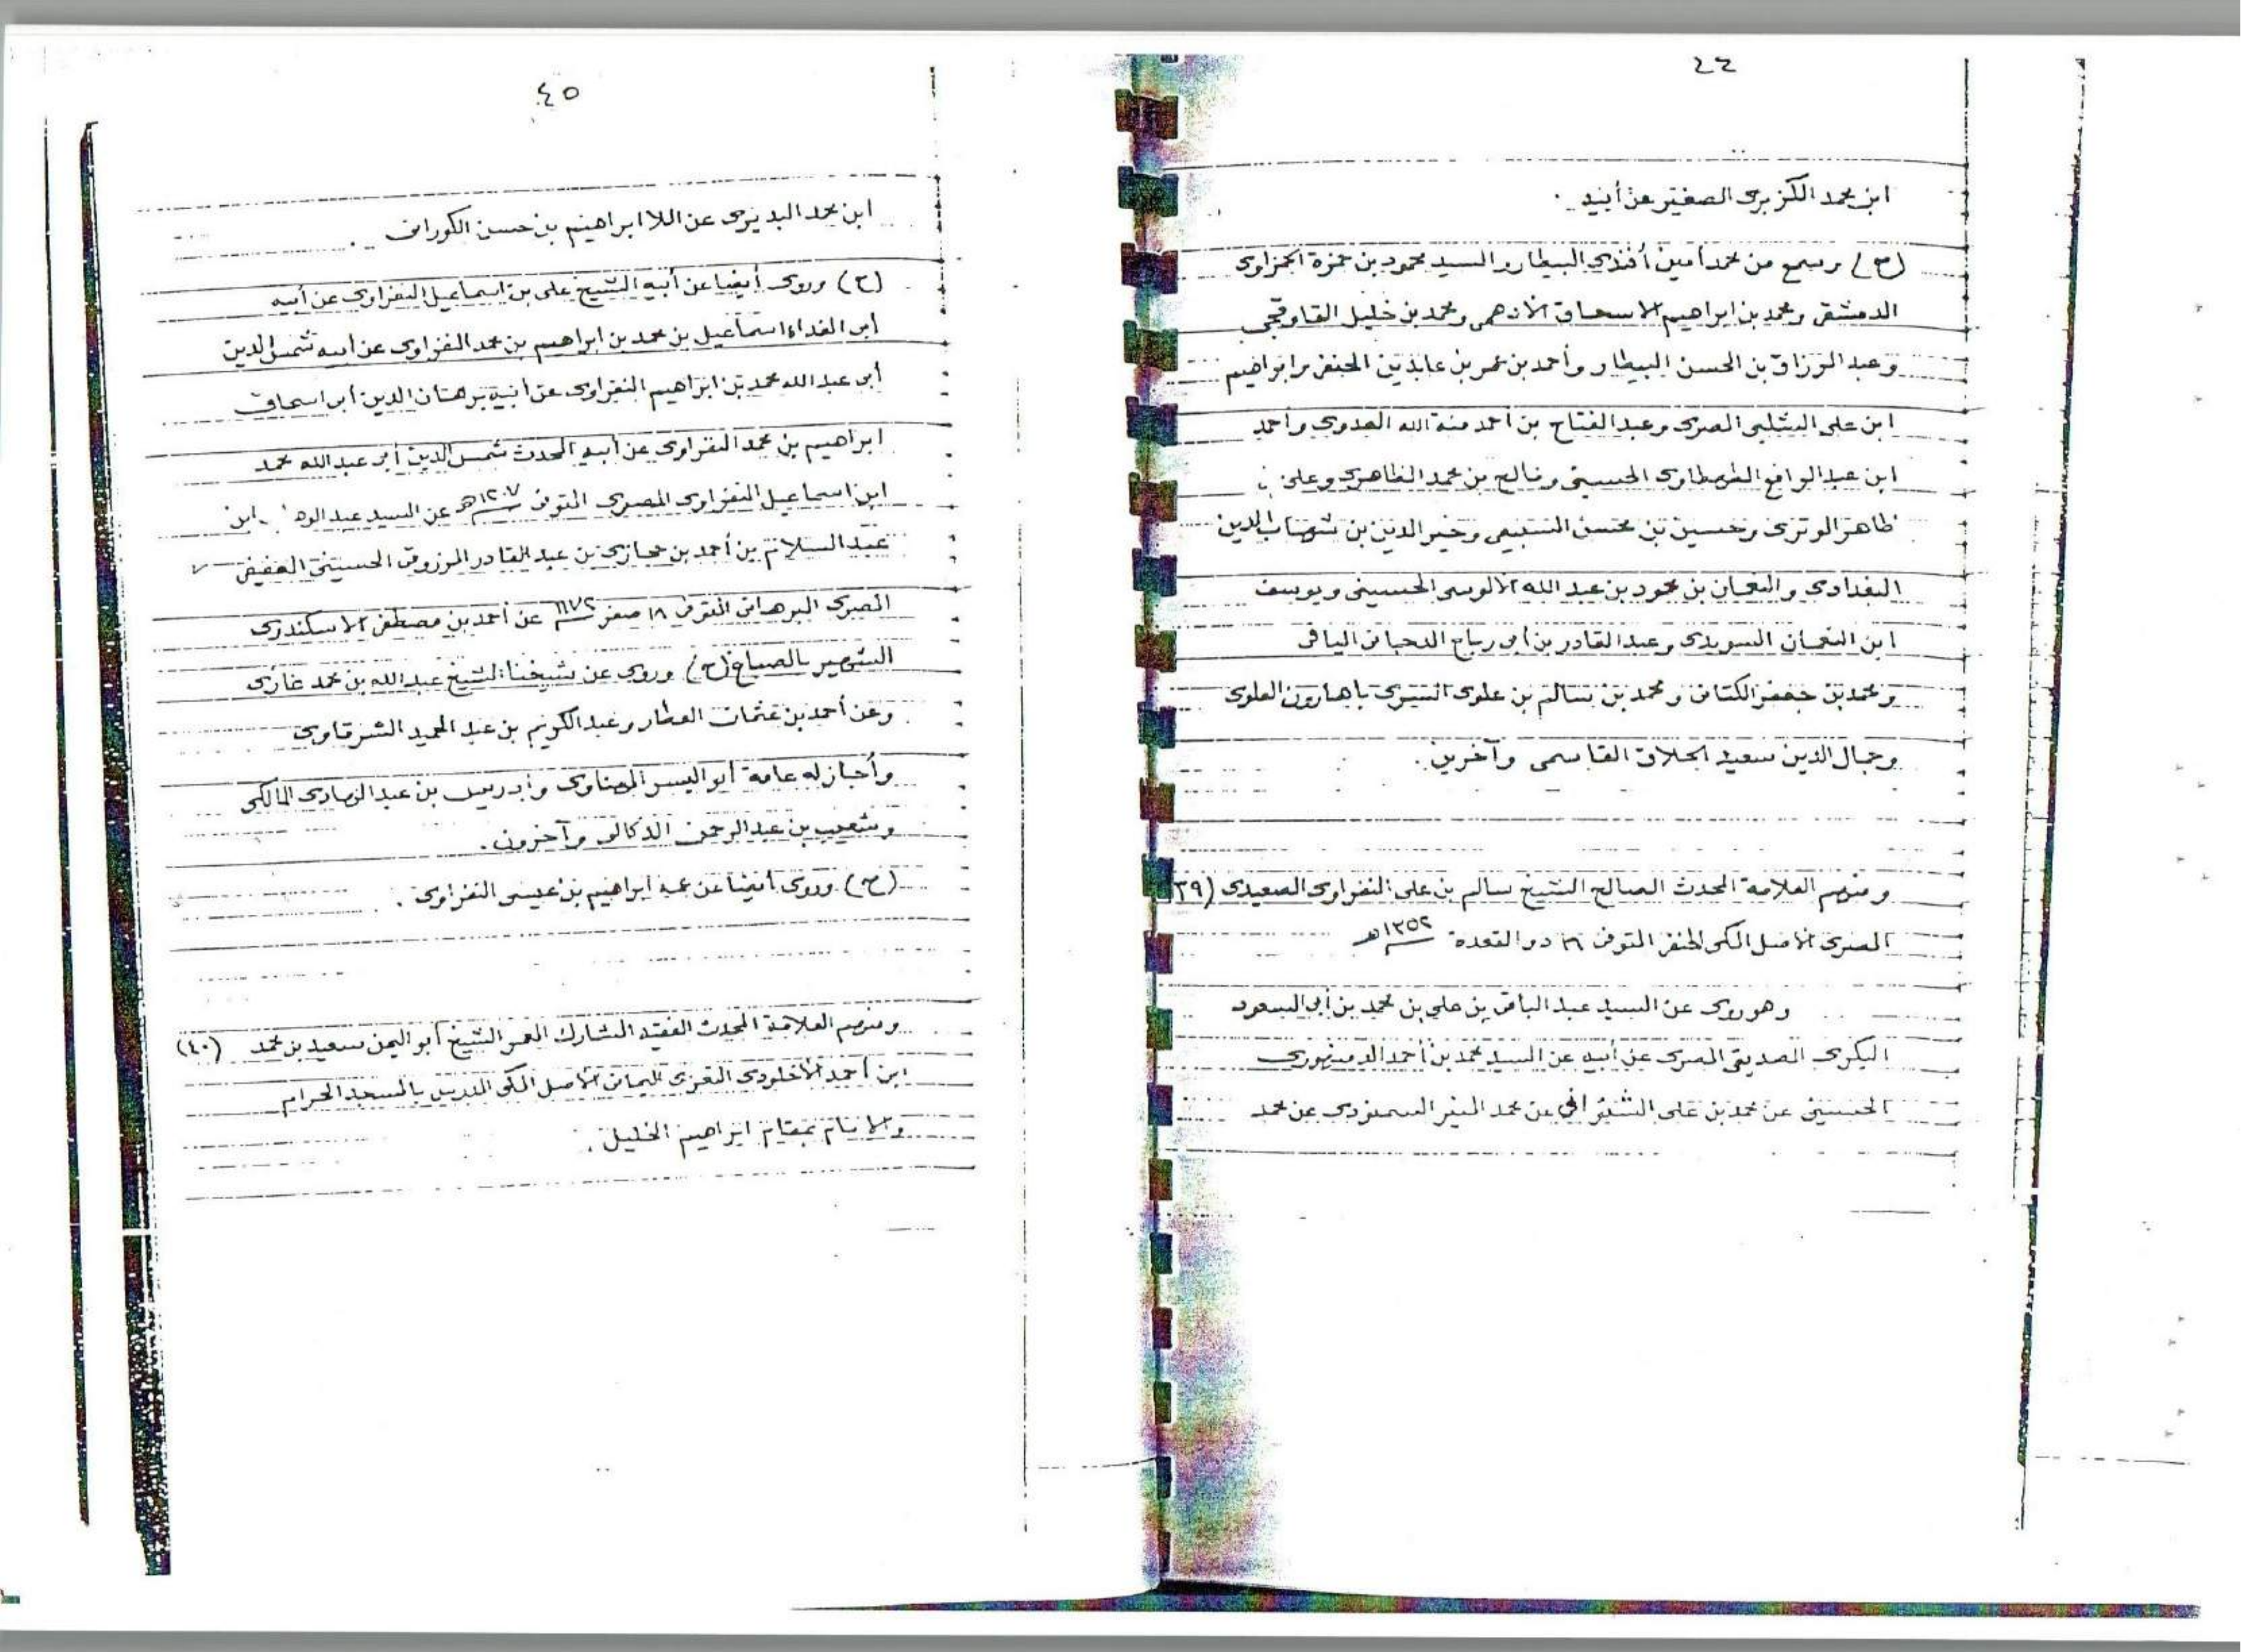 ٤٤
ابن محمد الكزبرى الصغير عن أبيه .
(ح) وسمع من محمد أمين أفندى البيطار والسيد محمود بن حمزة الحمزاوى
الدمشقى ومحمد بن ابراهيم الاسحاق الازهرى ومحمد بن خليل القاوقجى
وعبد الرزاق بن الحسن البيطار وأحمد بن عمر بن عابدين الحنفى وابراهيم
ابن على الشلبى المصرى وعبد الفتاح بن أحمد منة الله العدوى وأحمد
ابن عبد الرافع الطهطاوى الحسينى وفالح بن محمد الظاهرى وعلى بن
ظاهر الوترى وحسين بن محسن السبيعى وخير الدين بن شهاب الدين
البغدادى والنعمان بن محمود بن عبد الله الالوسى الحسينى ويوسف
ابن النعمان السويدى وعبد القادر بن أبى رباح الدجانى اليافى
ومحمد بن جعفر الكتانى ومحمد بن سالم بن علوى السرى باهارون العلوى
وجمال الدين سعيد الحلاق القاسمى وآخرين .
ومنهم العلامة المحدث الصالح الشيخ سالم بن على النفراوى الصعيدى (٣٩
المصرى الاصل المكى الحنفى المتوفى ١٦ ذو القعدة ١٣٥٢هـ
وهو روى عن السيد عبد الباقى بن على بن محمد بن أبى السعود
البكرى الصديقى المصرى عن أبيه عن السيد محمد بن أحمد الدمنهورى
الحسينى عن محمد بن على الشنوانى عن محمد المنير السمنودى عن محمد
٤٥
ابن محمد البديرى عن الملا ابراهيم بن حسن الكورانى .
(ح) وروى أيضا عن أبيه الشيخ على بن اسماعيل النفراوى عن أبيه
أبى الفداء اسماعيل بن محمد بن ابراهيم بن محمد النفراوى عن أبيه شمس الدين
أبى عبد الله محمد بن ابراهيم النفراوى عن أبيه برهان الدين أبى اسحاق
ابراهيم بن محمد النفراوى عن أبيه المحدث شمس الدين أبى عبد الله محمد
ابن اسماعيل النفراوى المصرى المتوفى ١٢٠٧هـ عن السيد عبد ابن
عبد السلام بن أحمد بن حجازى بن عبد القادر المرزوقى الحسينى العفيفى
المصرى البرهانى المتوفى ١٨ صفر ١١٧٢ عن أحمد بن مصطفى الاسكندرى
الشهير بالصباغ (ح) وروى عن شيخنا الشيخ عبد الله بن محمد غازى
وعن أحمد بن عثمان العطار وعبد الكريم بن عبد الحميد الشرقاوى
وأجاز له عامة أبو اليسر المهناوى وادريس بن عبد الهادى المالكى
وشعيب بن عبد الرحمن الدكالى وآخرون .
(ح) وروى أيضا عن عمه ابراهيم بن عيسى النفراوى .
ومنهم العلامة المحدث الفقيه المشارك المعمر الشيخ أبو اليمن سعيد بن محمد (٤٠)
ابن أحمد الأخلودى التعزى اليمانى الاصل المكى المدرس بالمسجد الحرام
والامام بمقام ابراهيم الخليل .